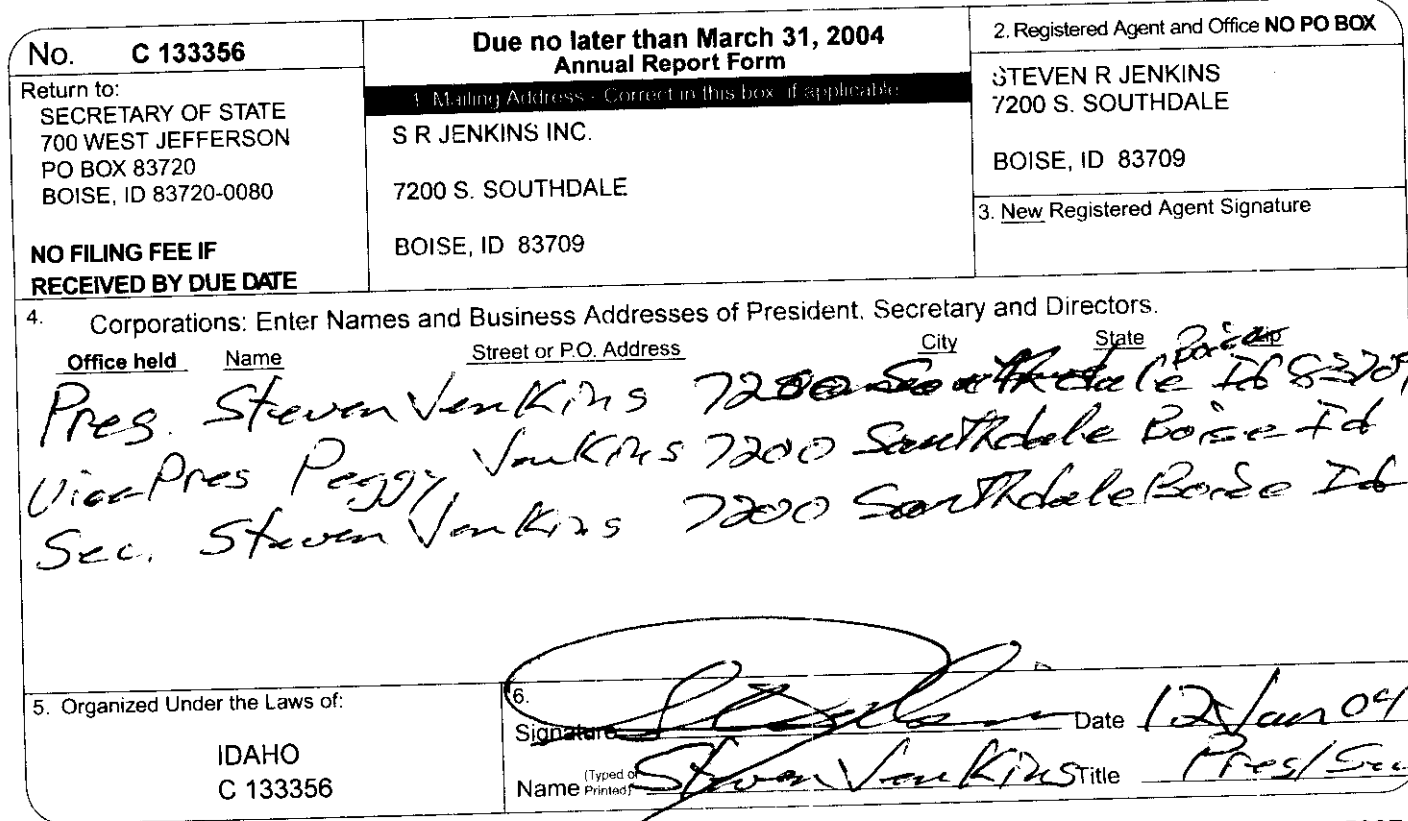 No. C 133356
Return to:
SECRETARY OF STATE
700 WEST JEFFERSON
PO BOX 83720
BOISE, ID 83720-0080
NO FILING FEE IF
RECEIVED BY DUE DATE
Due no later than March 31, 2004
Annual Report Form
1. Mailing Address - Correct in this box, if applicable
S R JENKINS INC.
7200 S. SOUTHDALE
BOISE, ID 83709
2. Registered Agent and Office NO PO BOX
STEVEN R JENKINS
7200 S. SOUTHDALE
BOISE, ID 83709
3. New Registered Agent Signature
4. Corporations: Enter Names and Business Addresses of President, Secretary and Directors.
Office held Name Street or P.O. Address City State Zip
Pres. Steven Jenkins 7200 Southdale Boise Id 83709
Vice Pres Peggy Jenkins 7200 Southdale Boise Id
Sec. Steven Jenkins 7200 Southdale Boise Id
5. Organized Under the Laws of:
IDAHO
C 133356
6.
Signature Date 12 Jan 04
Name (Typed or Printed) Steven Jenkins Title Pres/Sec